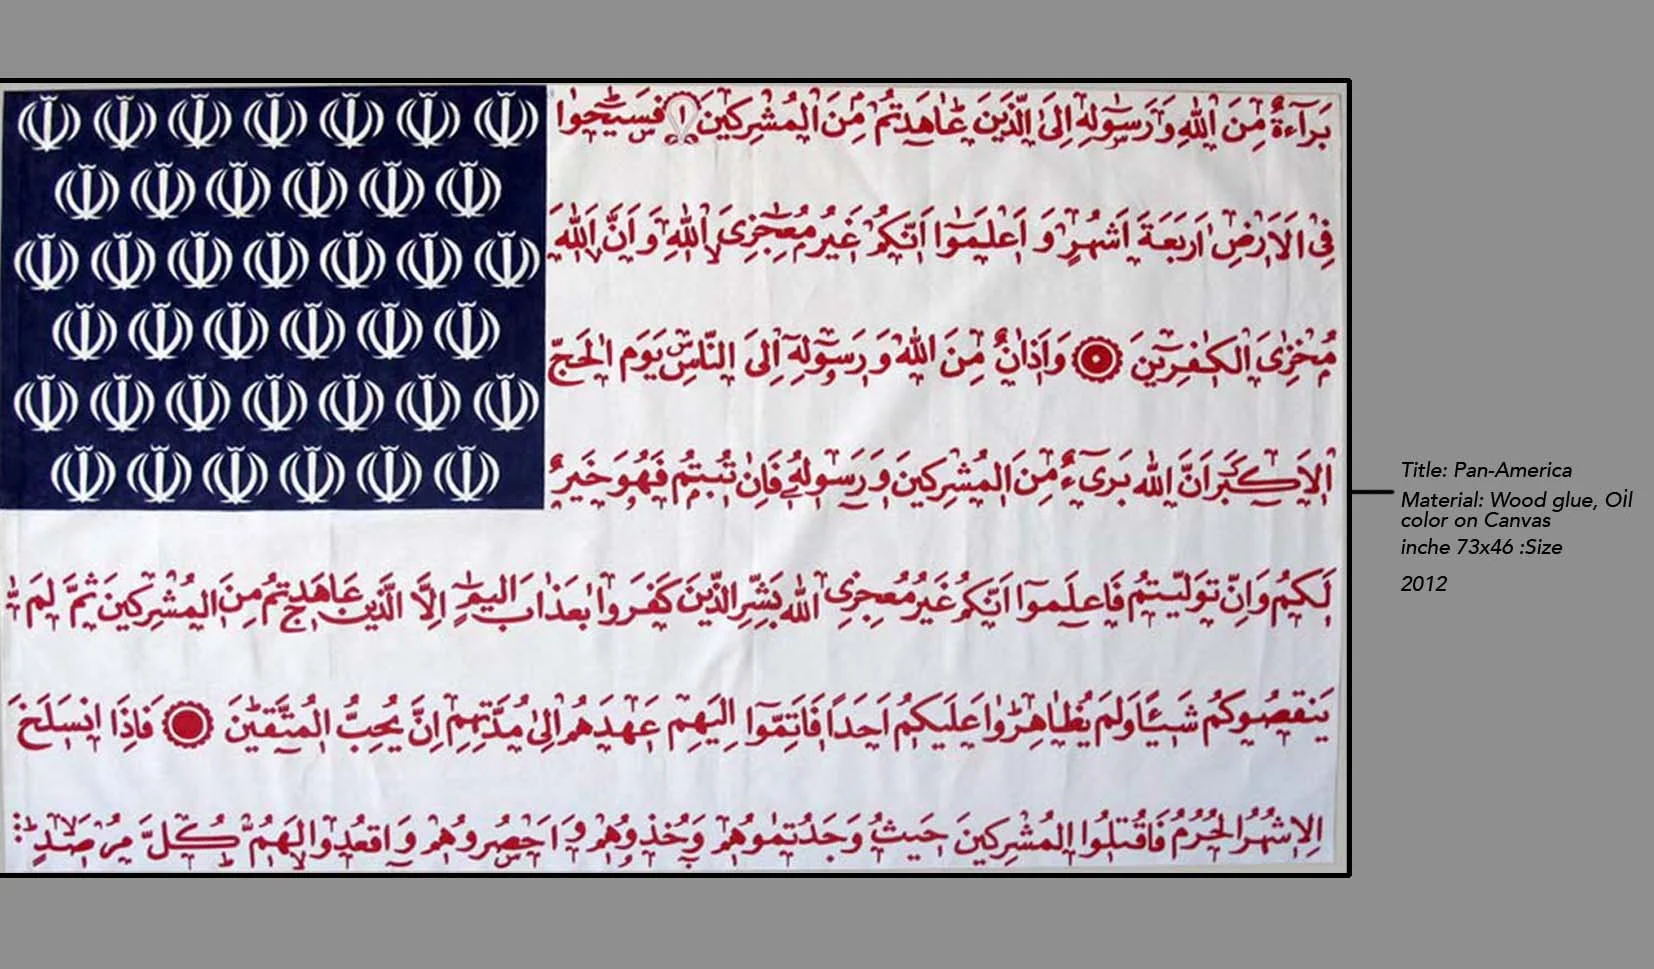 بَرَآءَةٌ مِّنَ اللّٰهِ وَ رَسُوْلِهٖ اِلَى الَّذِيْنَ عَاهَدْتُّمْ مِّنَ الْمُشْرِكِيْنَ ١ فَسِيْحُوْا
فِى الْاَرْضِ اَرْبَعَةَ اَشْهُرٍ وَ اعْلَمُوْٓا اَنَّكُمْ غَيْرُ مُعْجِزِى اللّٰهِ وَ اَنَّ اللّٰهَ
مُخْزِى الْكٰفِرِيْنَ وَ اَذَانٌ مِّنَ اللّٰهِ وَ رَسُوْلِهٖٓ اِلَى النَّاسِ يَوْمَ الْحَجِّ
الْاَكْبَرِ اَنَّ اللّٰهَ بَرِىْٓءٌ مِّنَ الْمُشْرِكِيْنَ وَ رَسُوْلُهٗ فَاِنْ تُبْتُمْ فَهُوَ خَيْرٌ
لَّكُمْ وَ اِنْ تَوَلَّيْتُمْ فَاعْلَمُوْٓا اَنَّكُمْ غَيْرُ مُعْجِزِى اللّٰهِ بَشِّرِ الَّذِيْنَ كَفَرُوْا بِعَذَابٍ اَلِيْمٍ اِلَّا الَّذِيْنَ عَاهَدْتُّمْ مِّنَ الْمُشْرِكِيْنَ ثُمَّ لَمْ
يَنْقُصُوْكُمْ شَيْـًٔا وَّ لَمْ يُظَاهِرُوْا عَلَيْكُمْ اَحَدًا فَاَتِمُّوْٓا اِلَيْهِمْ عَهْدَهُمْ اِلٰى مُدَّتِهِمْ اِنَّ يُحِبُّ الْمُتَّقِيْنَ فَاِذَا انْسَلَخَ
الْاَشْهُرُ الْحُرُمُ فَاقْتُلُوا الْمُشْرِكِيْنَ حَيْثُ وَجَدْتُّمُوْهُمْ وَ خُذُوْهُمْ وَ احْصُرُوْهُمْ وَ اقْعُدُوْا لَهُمْ كُلَّ مَرْصَدٍ
Title: Pan-America
Material: Wood glue, Oil
color on Canvas
inche 73x46 :Size
2012